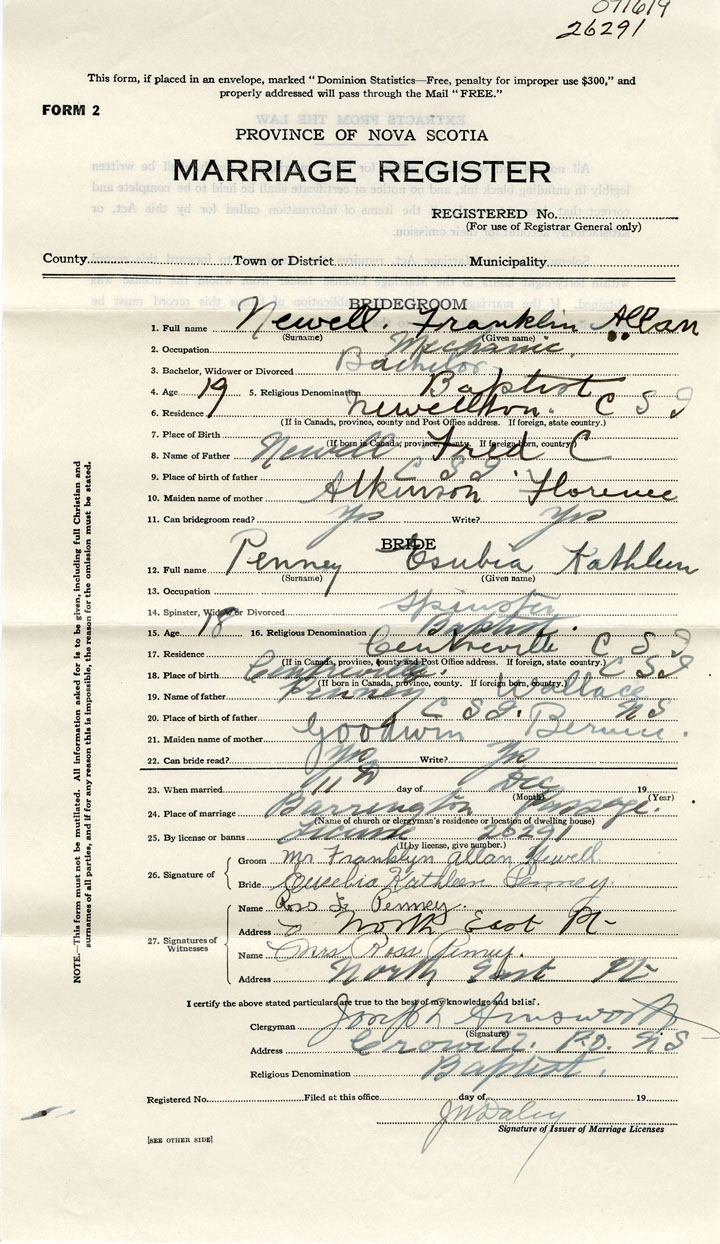 071619
26291
This form, if placed in an envelope, marked "Dominion Statistics—Free, penalty for improper use $300," and
properly addressed will pass through the Mail "FREE."
FORM 2
PROVINCE OF NOVA SCOTIA
MARRIAGE REGISTER
REGISTERED No.
(For use of Registrar General only)
County Town or District Municipality
BRIDEGROOM
1. Full name Newell. Franklin Allan
(Surname) (Given name)
2. Occupation Mechanic.
3. Bachelor, Widower or Divorced Bachelor
4. Age 19 5. Religious Denomination Baptist
6. Residence Newellton. C S I
(If in Canada, province, county and Post Office address. If foreign, state country.)
7. Place of Birth
(If born in Canada, province, county. If foreign born, country)
8. Name of Father Newell Fred C
9. Place of birth of father C S I.
10. Maiden name of mother Atkinson Florence
11. Can bridegroom read? Yes Write? Yes
BRIDE
12. Full name Penney Esubia Kathleen
(Surname) (Given name)
13. Occupation
14. Spinster, Widow or Divorced Spinster
15. Age 18 16. Religious Denomination Baptist.
17. Residence Centreville C S I
(If in Canada, province, county and Post Office address. If foreign, state country.)
18. Place of birth Centreville. C S I
(If born in Canada, province, county. If foreign born, country.)
19. Name of father Penney Wallace
20. Place of birth of father C S I. NS
21. Maiden name of mother Goodwin Bernice.
22. Can bride read? Yes Write? Yes
23. When married 11th day of Dec 19
(Month) (Year)
24. Place of marriage Barrington Passage.
(Name of church or clergyman's residence or location of dwelling house)
25. By license or banns License 26291
(If by license, give number.)
26. Signature of
Groom Mr Franklyn Allan Newell
Bride Eusebia Kathleen Penney
27. Signatures of Witnesses
Name Ross Penney.
Address North East Pt
Name Mrs Ross Penney.
Address North East Pt
I certify the above stated particulars are true to the best of my knowledge and belief.
Clergyman Joseph Ainsworth
(Signature)
Address Crowell. P.O. N S
Religious Denomination Baptist.
Registered No. Filed at this office day of 19
J W Daley
Signature of Issuer of Marriage Licenses
[SEE OTHER SIDE]
NOTE.—This form must not be mutilated. All information asked for is to be given, including full Christian and
surnames of all parties, and if for any reason this is impossible, the reason for the omission must be stated.